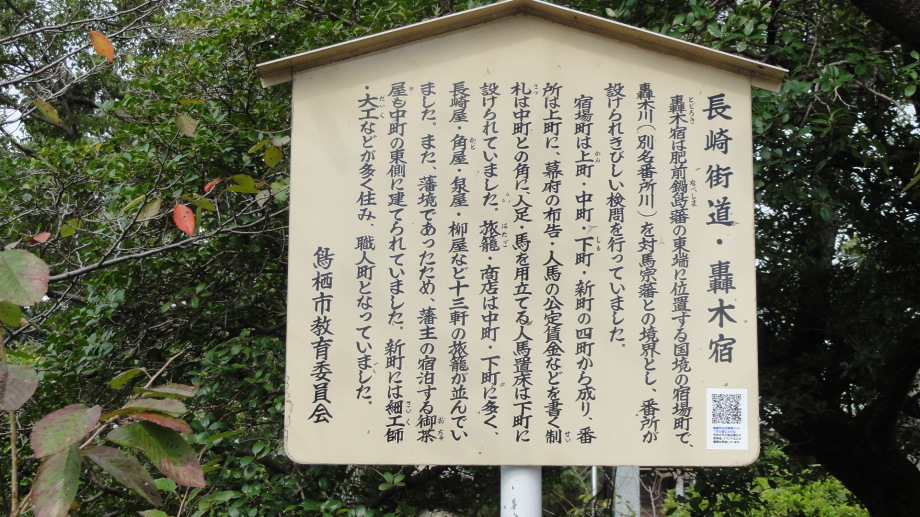 長崎街道・轟木宿
轟木宿は肥前鍋島藩の東端に位置する国境の宿場町で、
轟木川(別名番所川)を対馬宗藩との境界とし、番所が
設けられきびしい検問を行っていました。
宿場町は上町・中町・下町・新町の四町から成り、番
所は上町に、幕府の布告・人馬の公定賃金などを書く制
札は中町との角に、人足・馬を用立てる人馬置床は下町に
設けられていました。旅籠・商店は中町・下町に多く、
長崎屋・角屋・泉屋・柳屋など十三軒の旅籠が並んでい
ました。また、藩境であったため、藩主の宿泊する御茶
屋も中町の東側に建てられていました。新町には細工師
・大工などが多く住み、職人町となっていました。
鳥栖市教育委員会